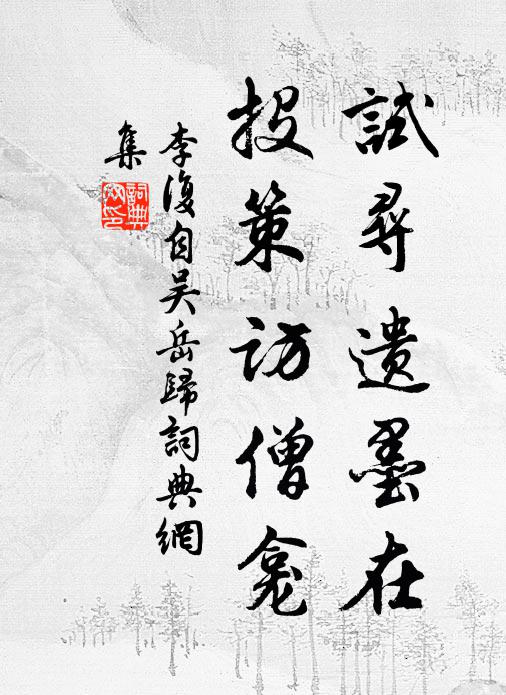 試尋遺墨在
投策訪僧龕
李復自吴岳歸詞典網
集
詞典網印